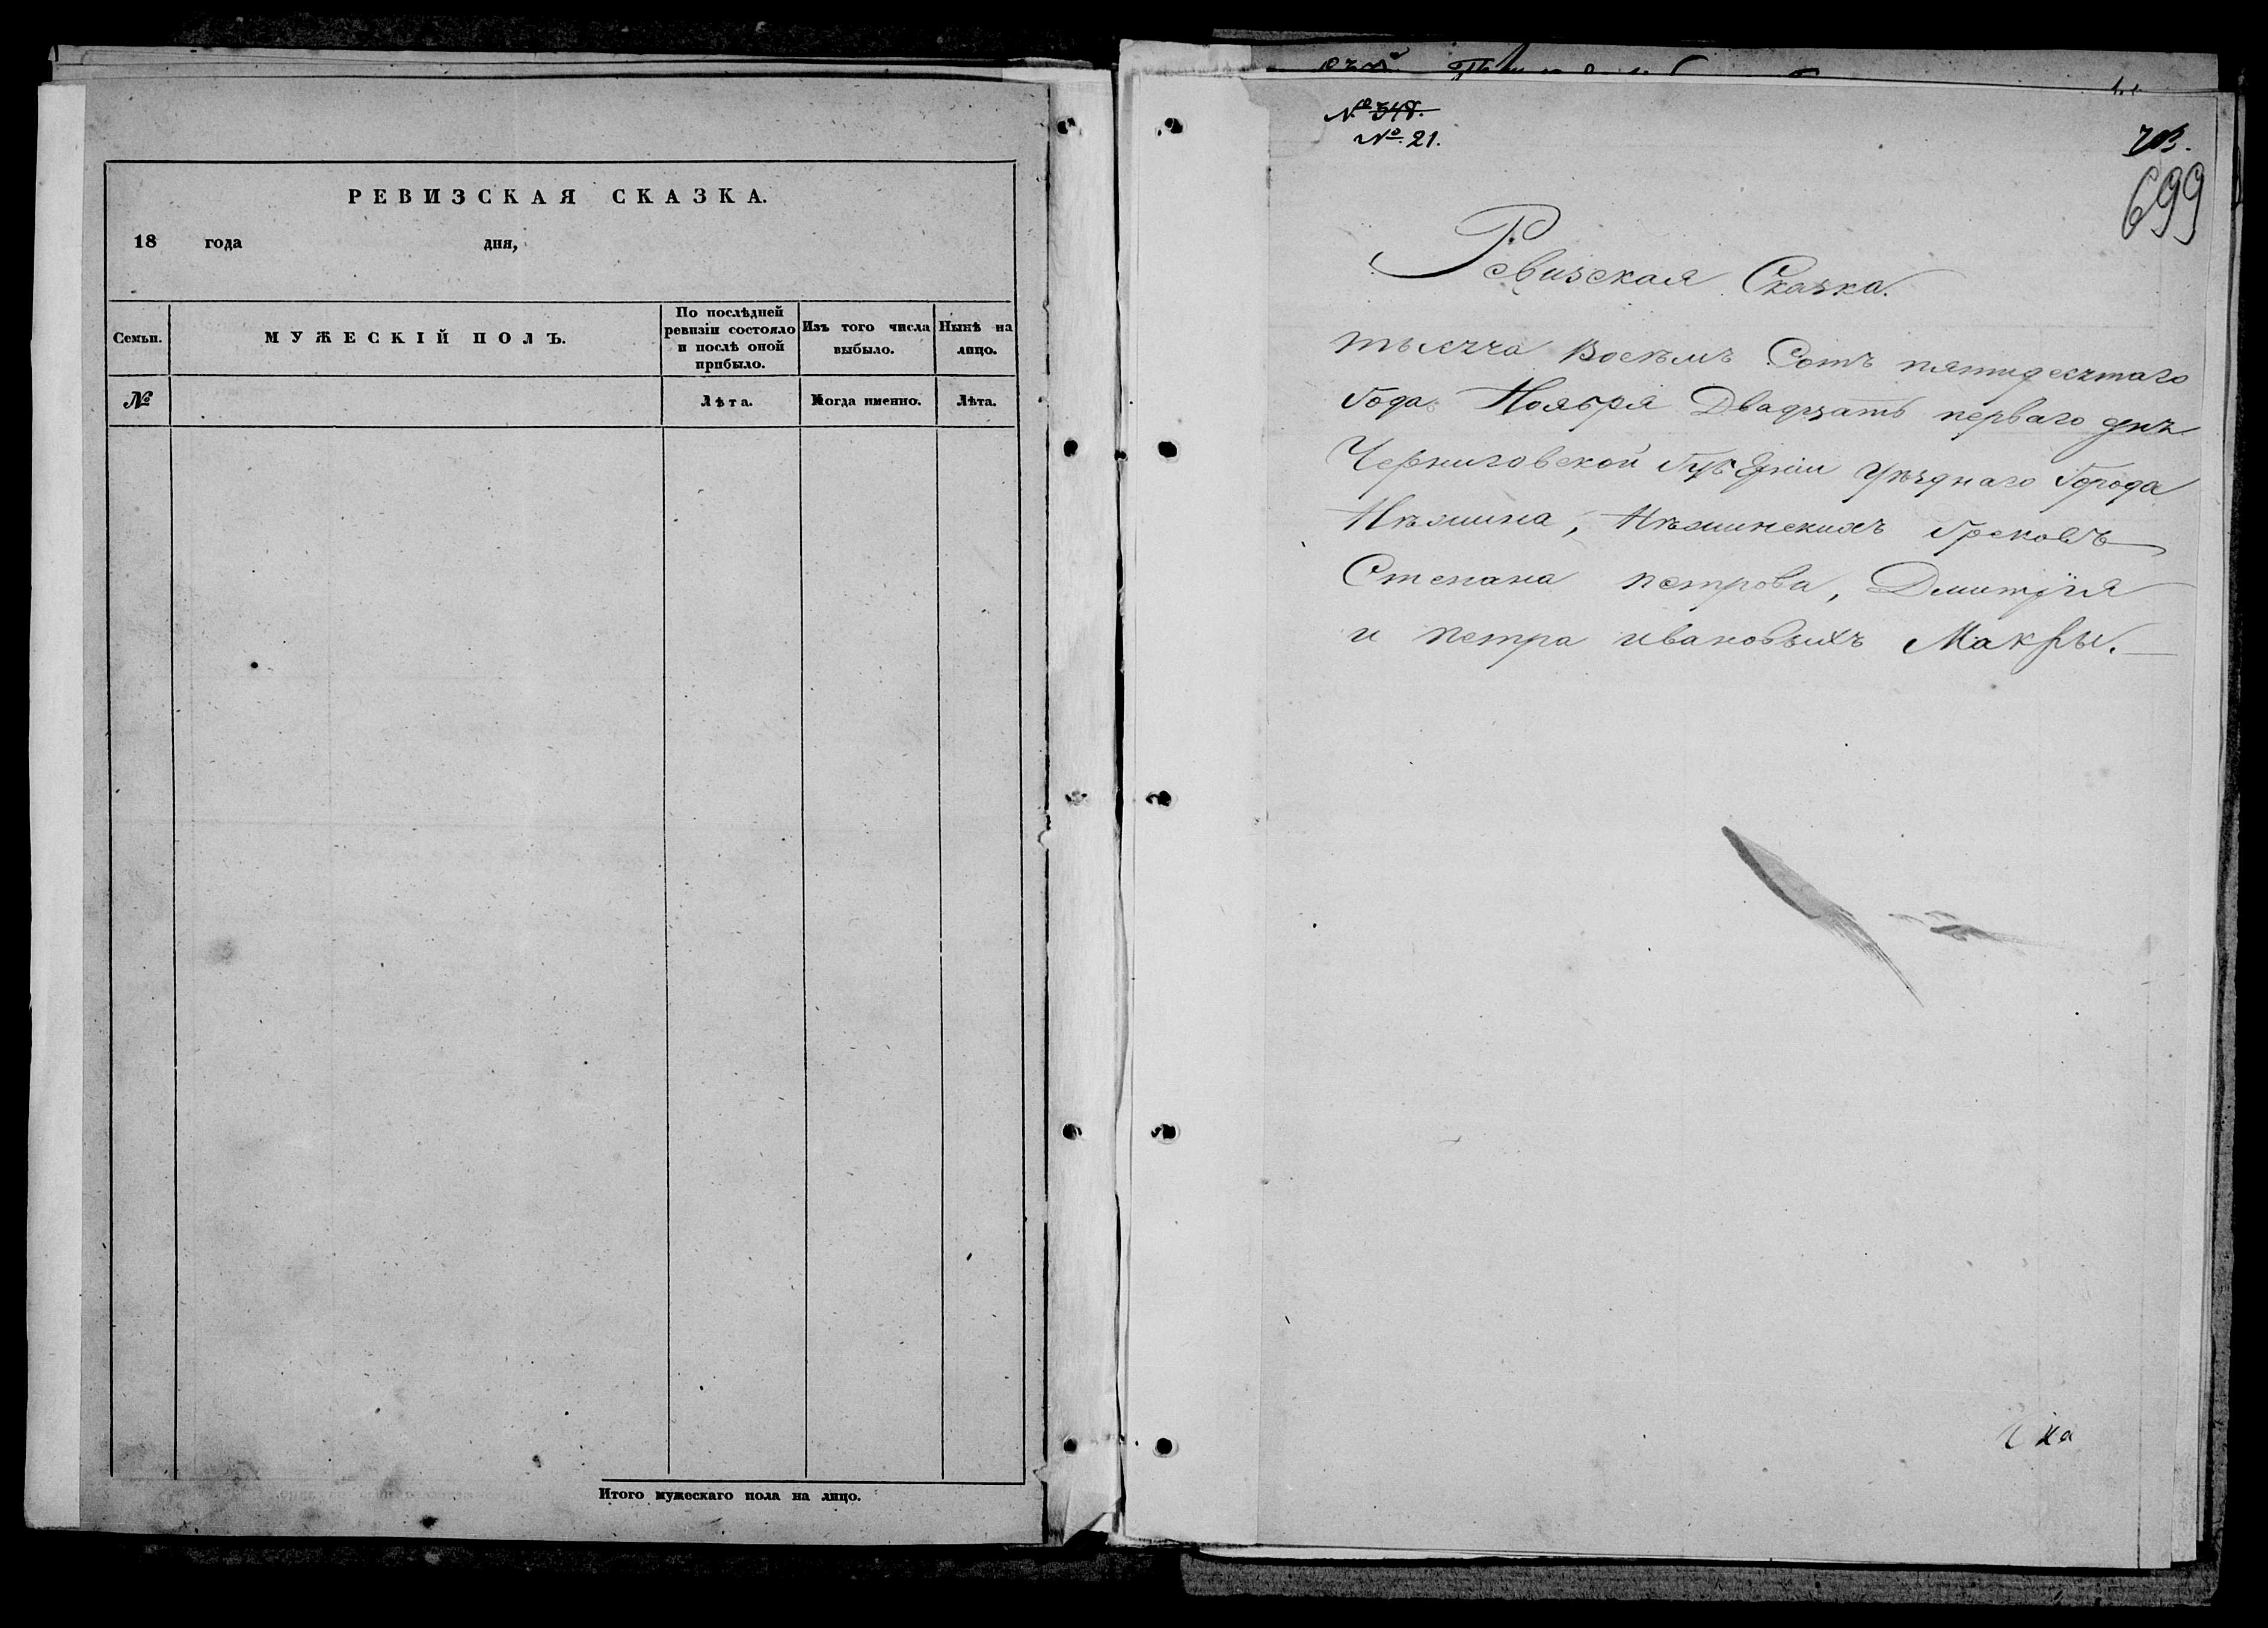 РЕВИЗСКАЯ СКАЗКА.
18 года дня,
Семьи.
МУЖЕСКІЙ ПОЛЪ.
По послѣдней
ревизіи состояло
и послѣ оной
прибыло.
Изъ того числа
выбыло.
Нынѣ на
лицо.
№
Лѣта.
Когда именно.
Лѣта.
Итого мужескаго пола на лицо.
№ 348.
№ 21.
699
Ревизская Сказка.
тысяча Восемъ Сотъ пятидесятаго
Года Ноября Двадцать перваго дня
Черниговской Губерніи Уѣзднаго Города
Нѣжина, Нѣжинскихъ Грековъ
Степана петрова, Дмитрія
и петра ивановыхъ Макры.